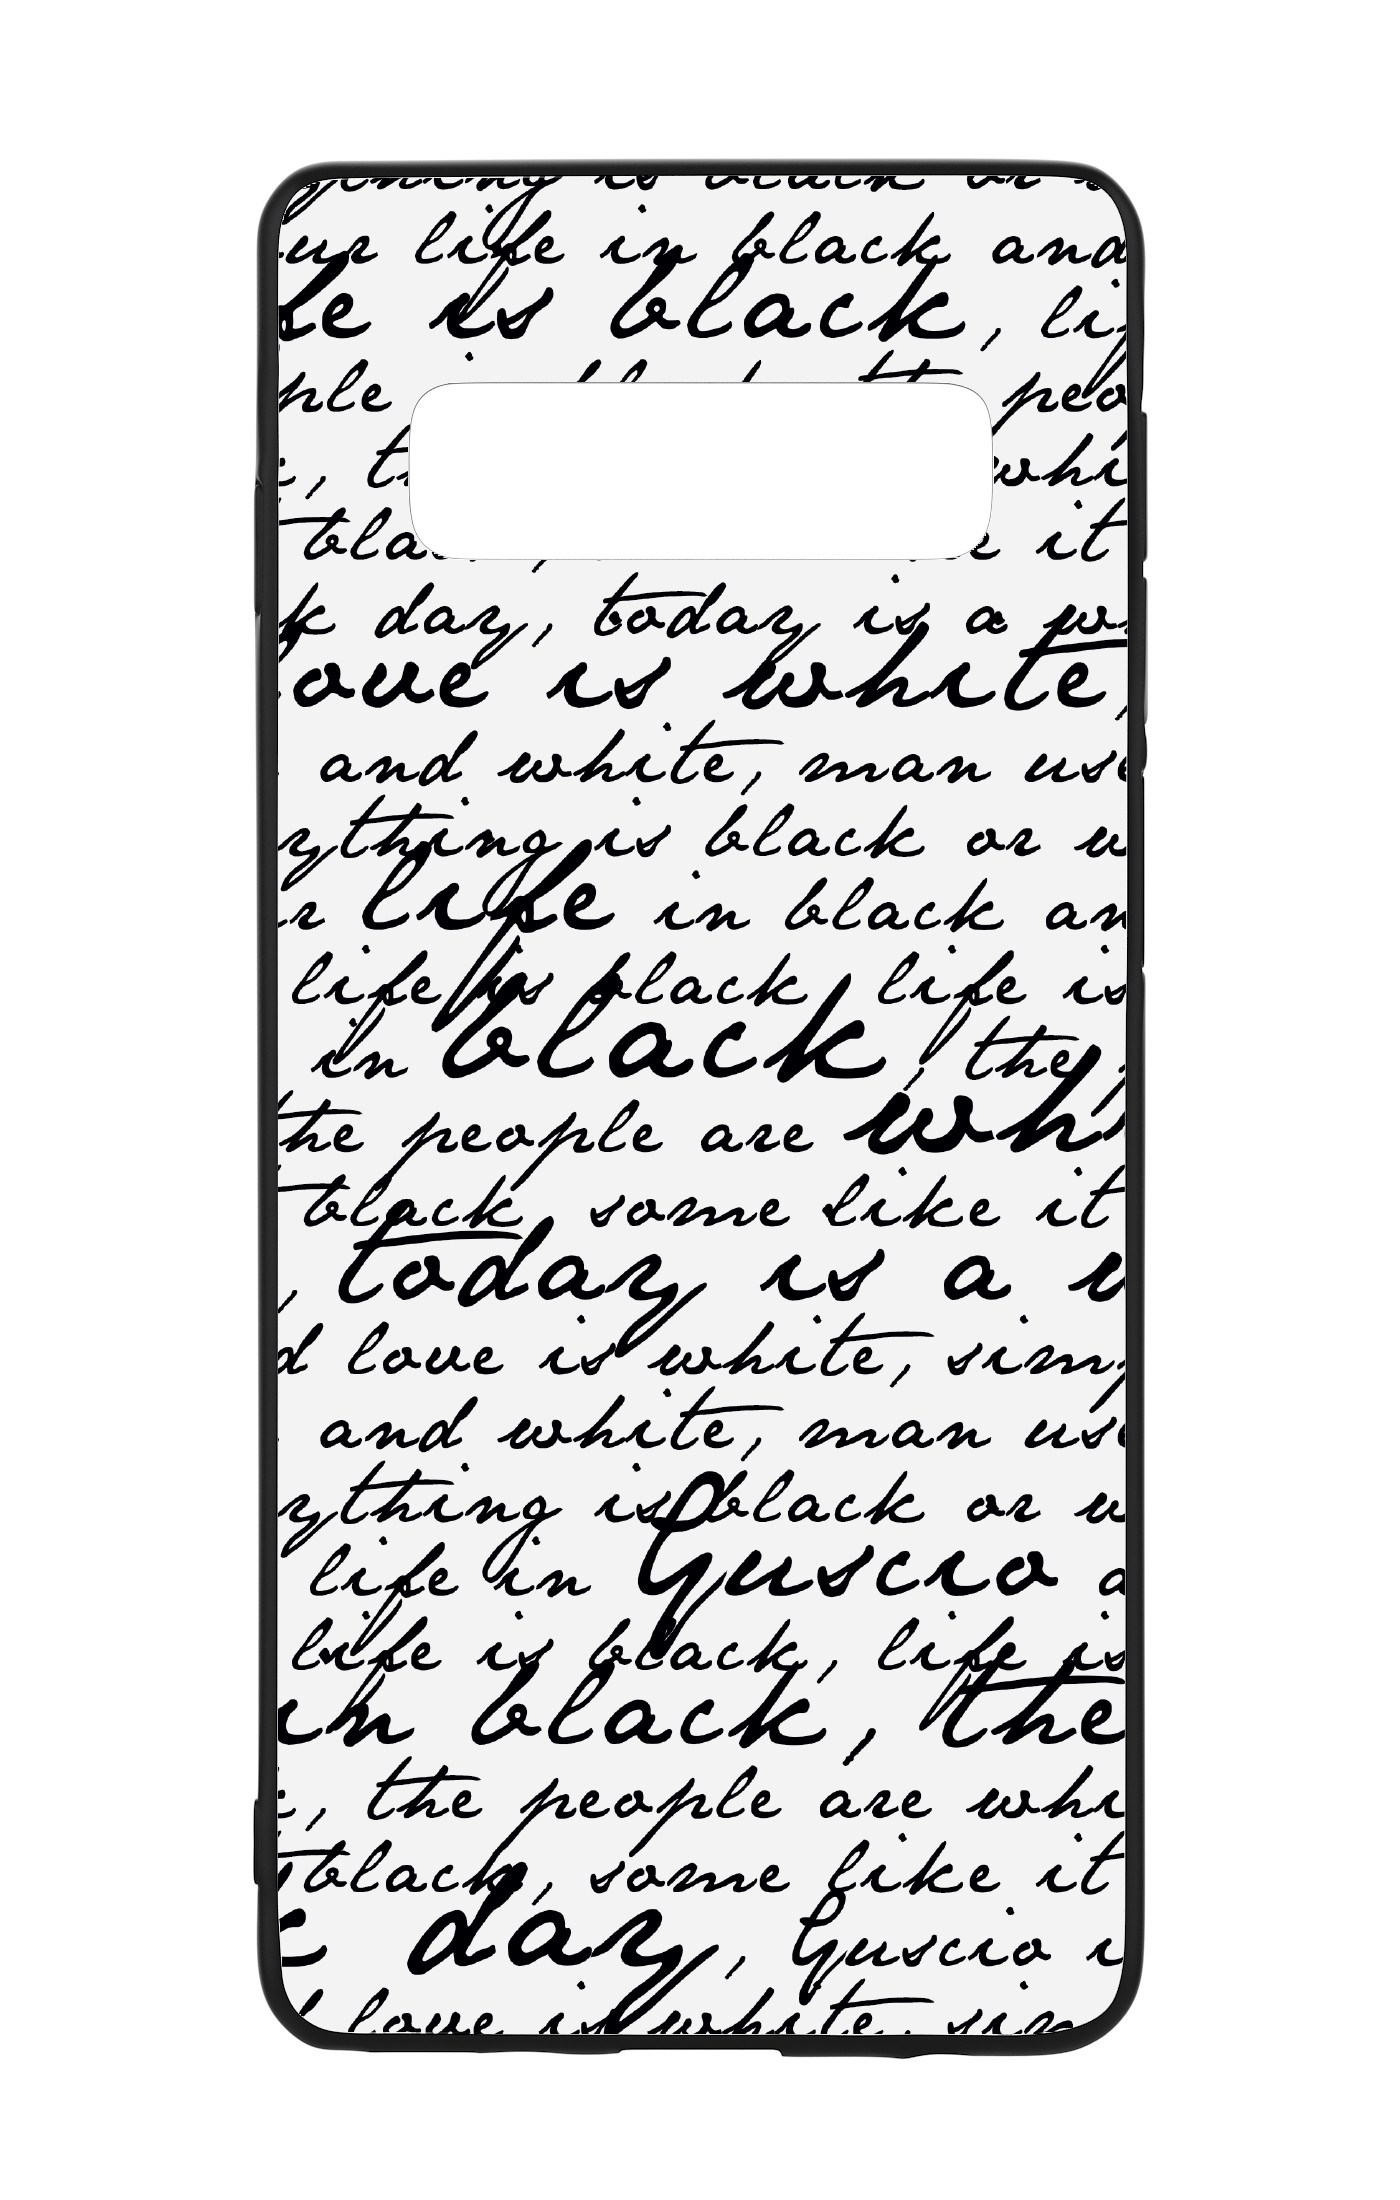 ything is black or w
ur life in black and
fe is black, lif
ple peo
, t whi
black, it
k day, today is a wh
love is white,
and white, man use
rything is black or w
r life in black an
life is black, life is
in black, the
the people are whi
black, some like it
, today is a w
d love is white, simp
and white, man use
rything is black or w
life in Guscio a
life is black, life is
in black, the
, the people are whi
black, some like it
day, Guscio i
love is white, sim